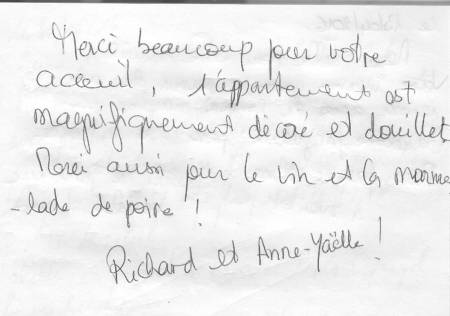 Merci beaucoup pour votre
acceuil, l'appartement est
magnifiquement décoré et douillet.
Merci aussi pour le vin et la marme
-lade de poire !
Richard et Anne-Yaëlle !